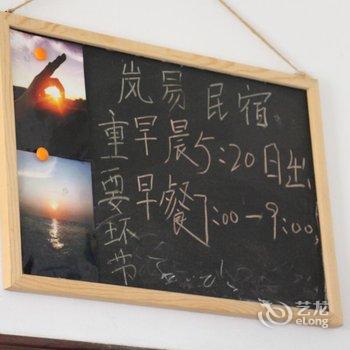 岚易民宿
重要环节
早晨5:20日出
早餐7:00-9:00
艺龙
eLong.com